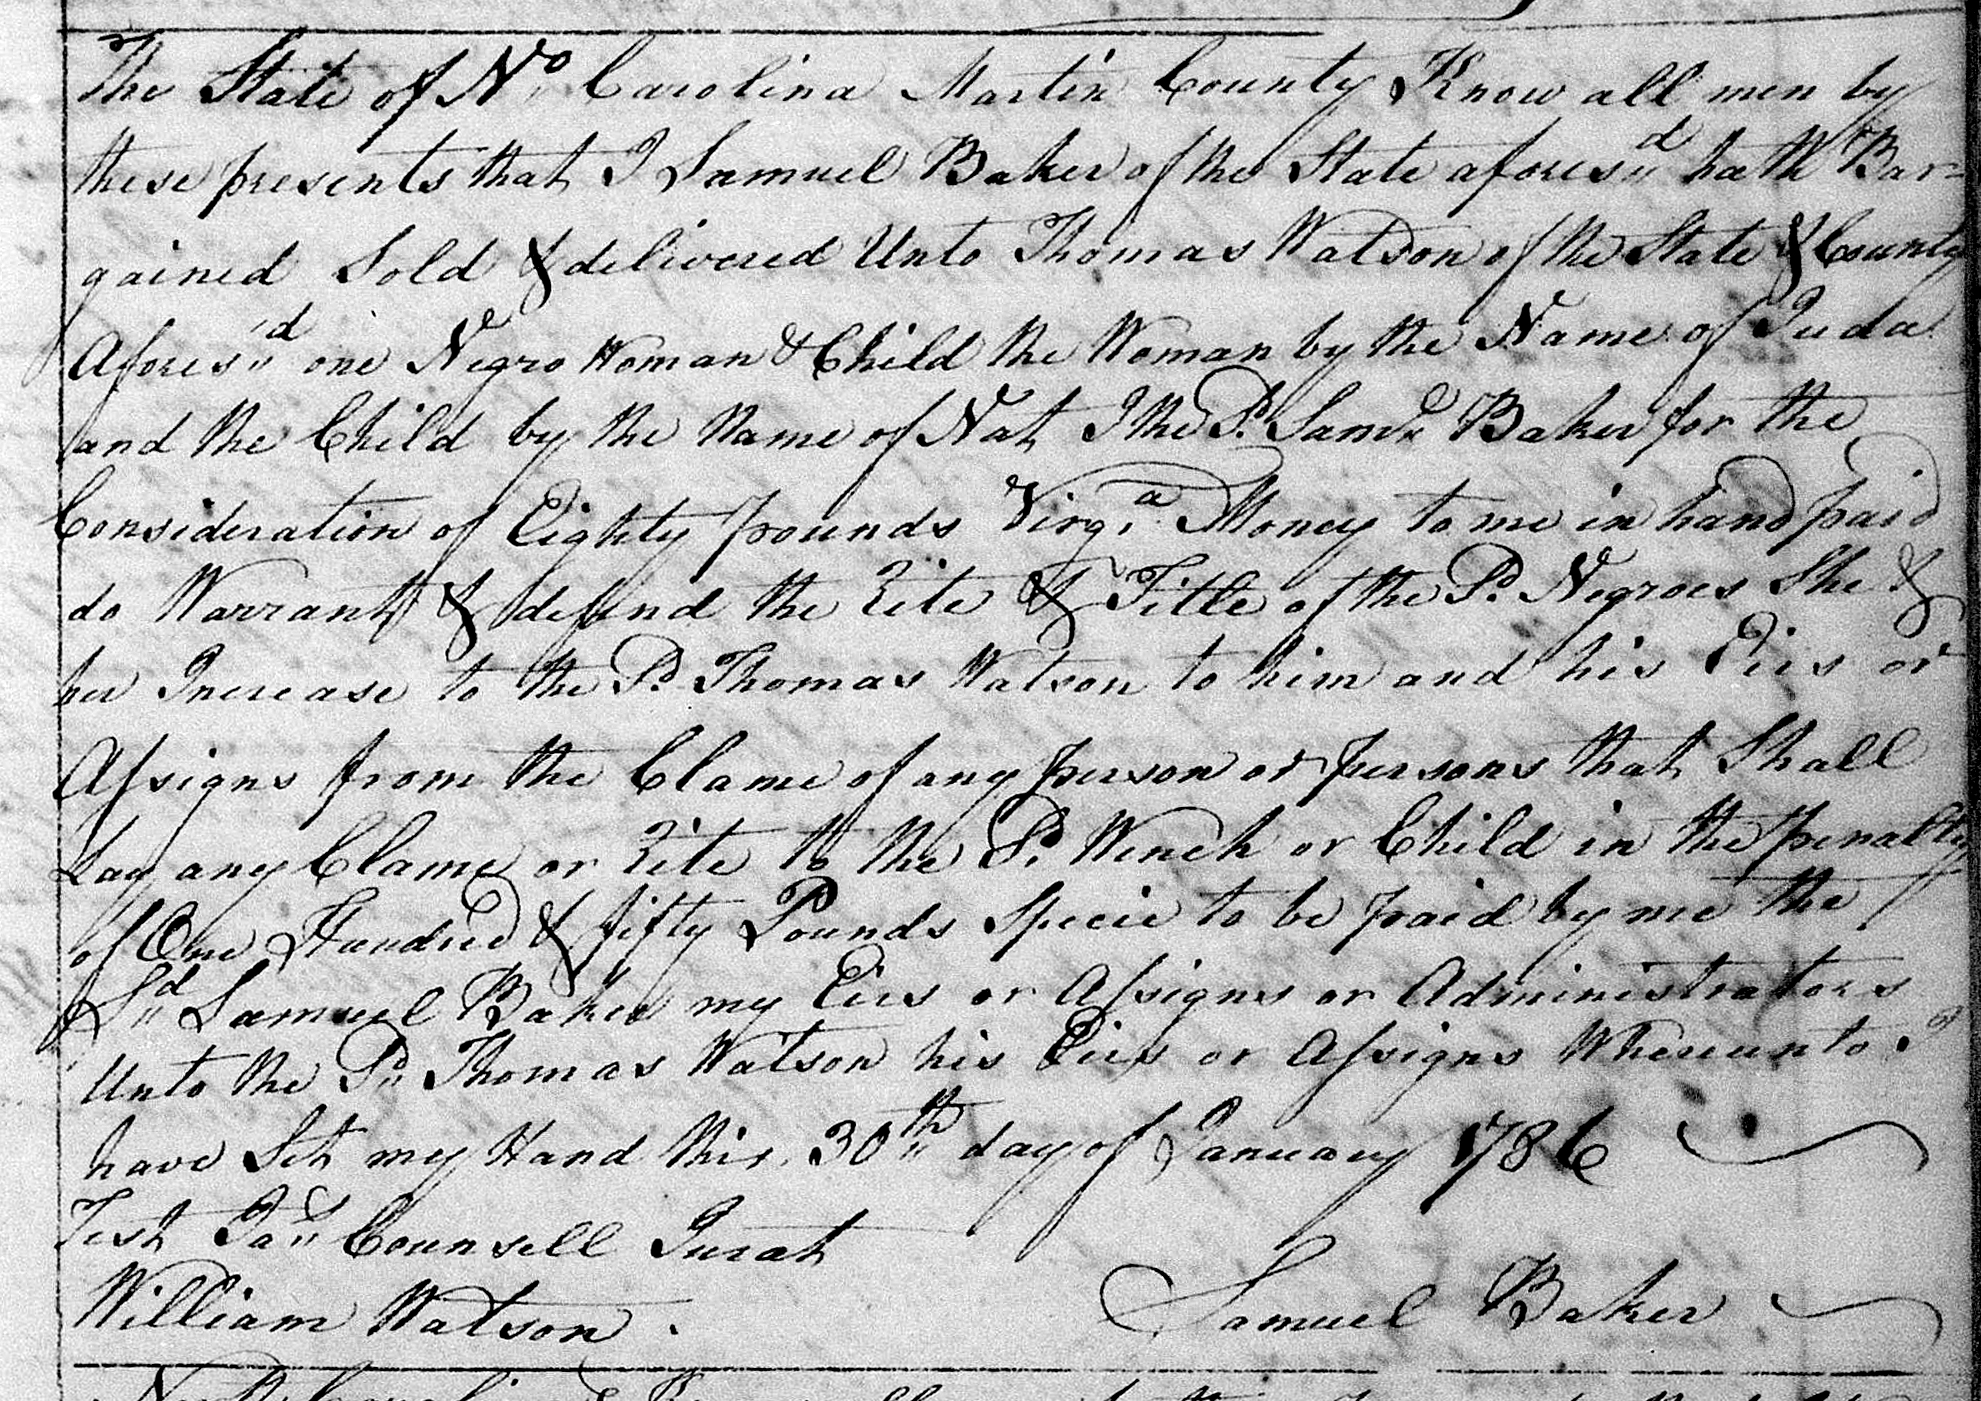 The State of No. Carolina Martin County Know all men by
these presents that I Samuel Baker of the State afores,,d hath Bar=
gained Sold & delivered Unto Thomas Watson of the State & County
Afores,,d one Negro Woman & Child the Woman by the Name of Juda
and the Child by the Name of Nat I the Sd. Saml. Baker for the
Consideration of Eighty pounds Virg,a Money to me in hand paid
do Warrant & defend the Rite & Title of the Sd. Negroes She &
her Increase to the Sd. Thomas Watson to him and his Eirs or
Assigns from the Clame of any person or persons that Shall
Lay any Clame or Rite to the Sd. Wench or Child in the penalty
of One Hundred & fifty Pounds Specie to be paid by me the
Sd,, Samuel Baker my Eirs or Assigns or Administrators
Unto the Sd,, Thomas Watson his Eirs or Assigns Whereunto I
have Set my Hand this 30,,th day of January 1786
Test Jas,, Counsell Jurat
William Watson.
Samuel Baker